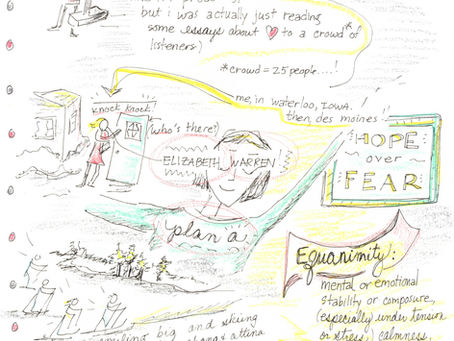 but i was actually just reading
some essays about ♥ to a crowd* of
listeners)
*crowd = 25 people....!
me, in waterloo, IOWA.
then, des moines!
Knock Knock!
(who's there?)
ELIZABETH WARREN
HOPE
over
FEAR
plan a
Equanimity:
mental or emotional
stability or composure,
(especially) under tension
or stress, calmness,
big and skiing